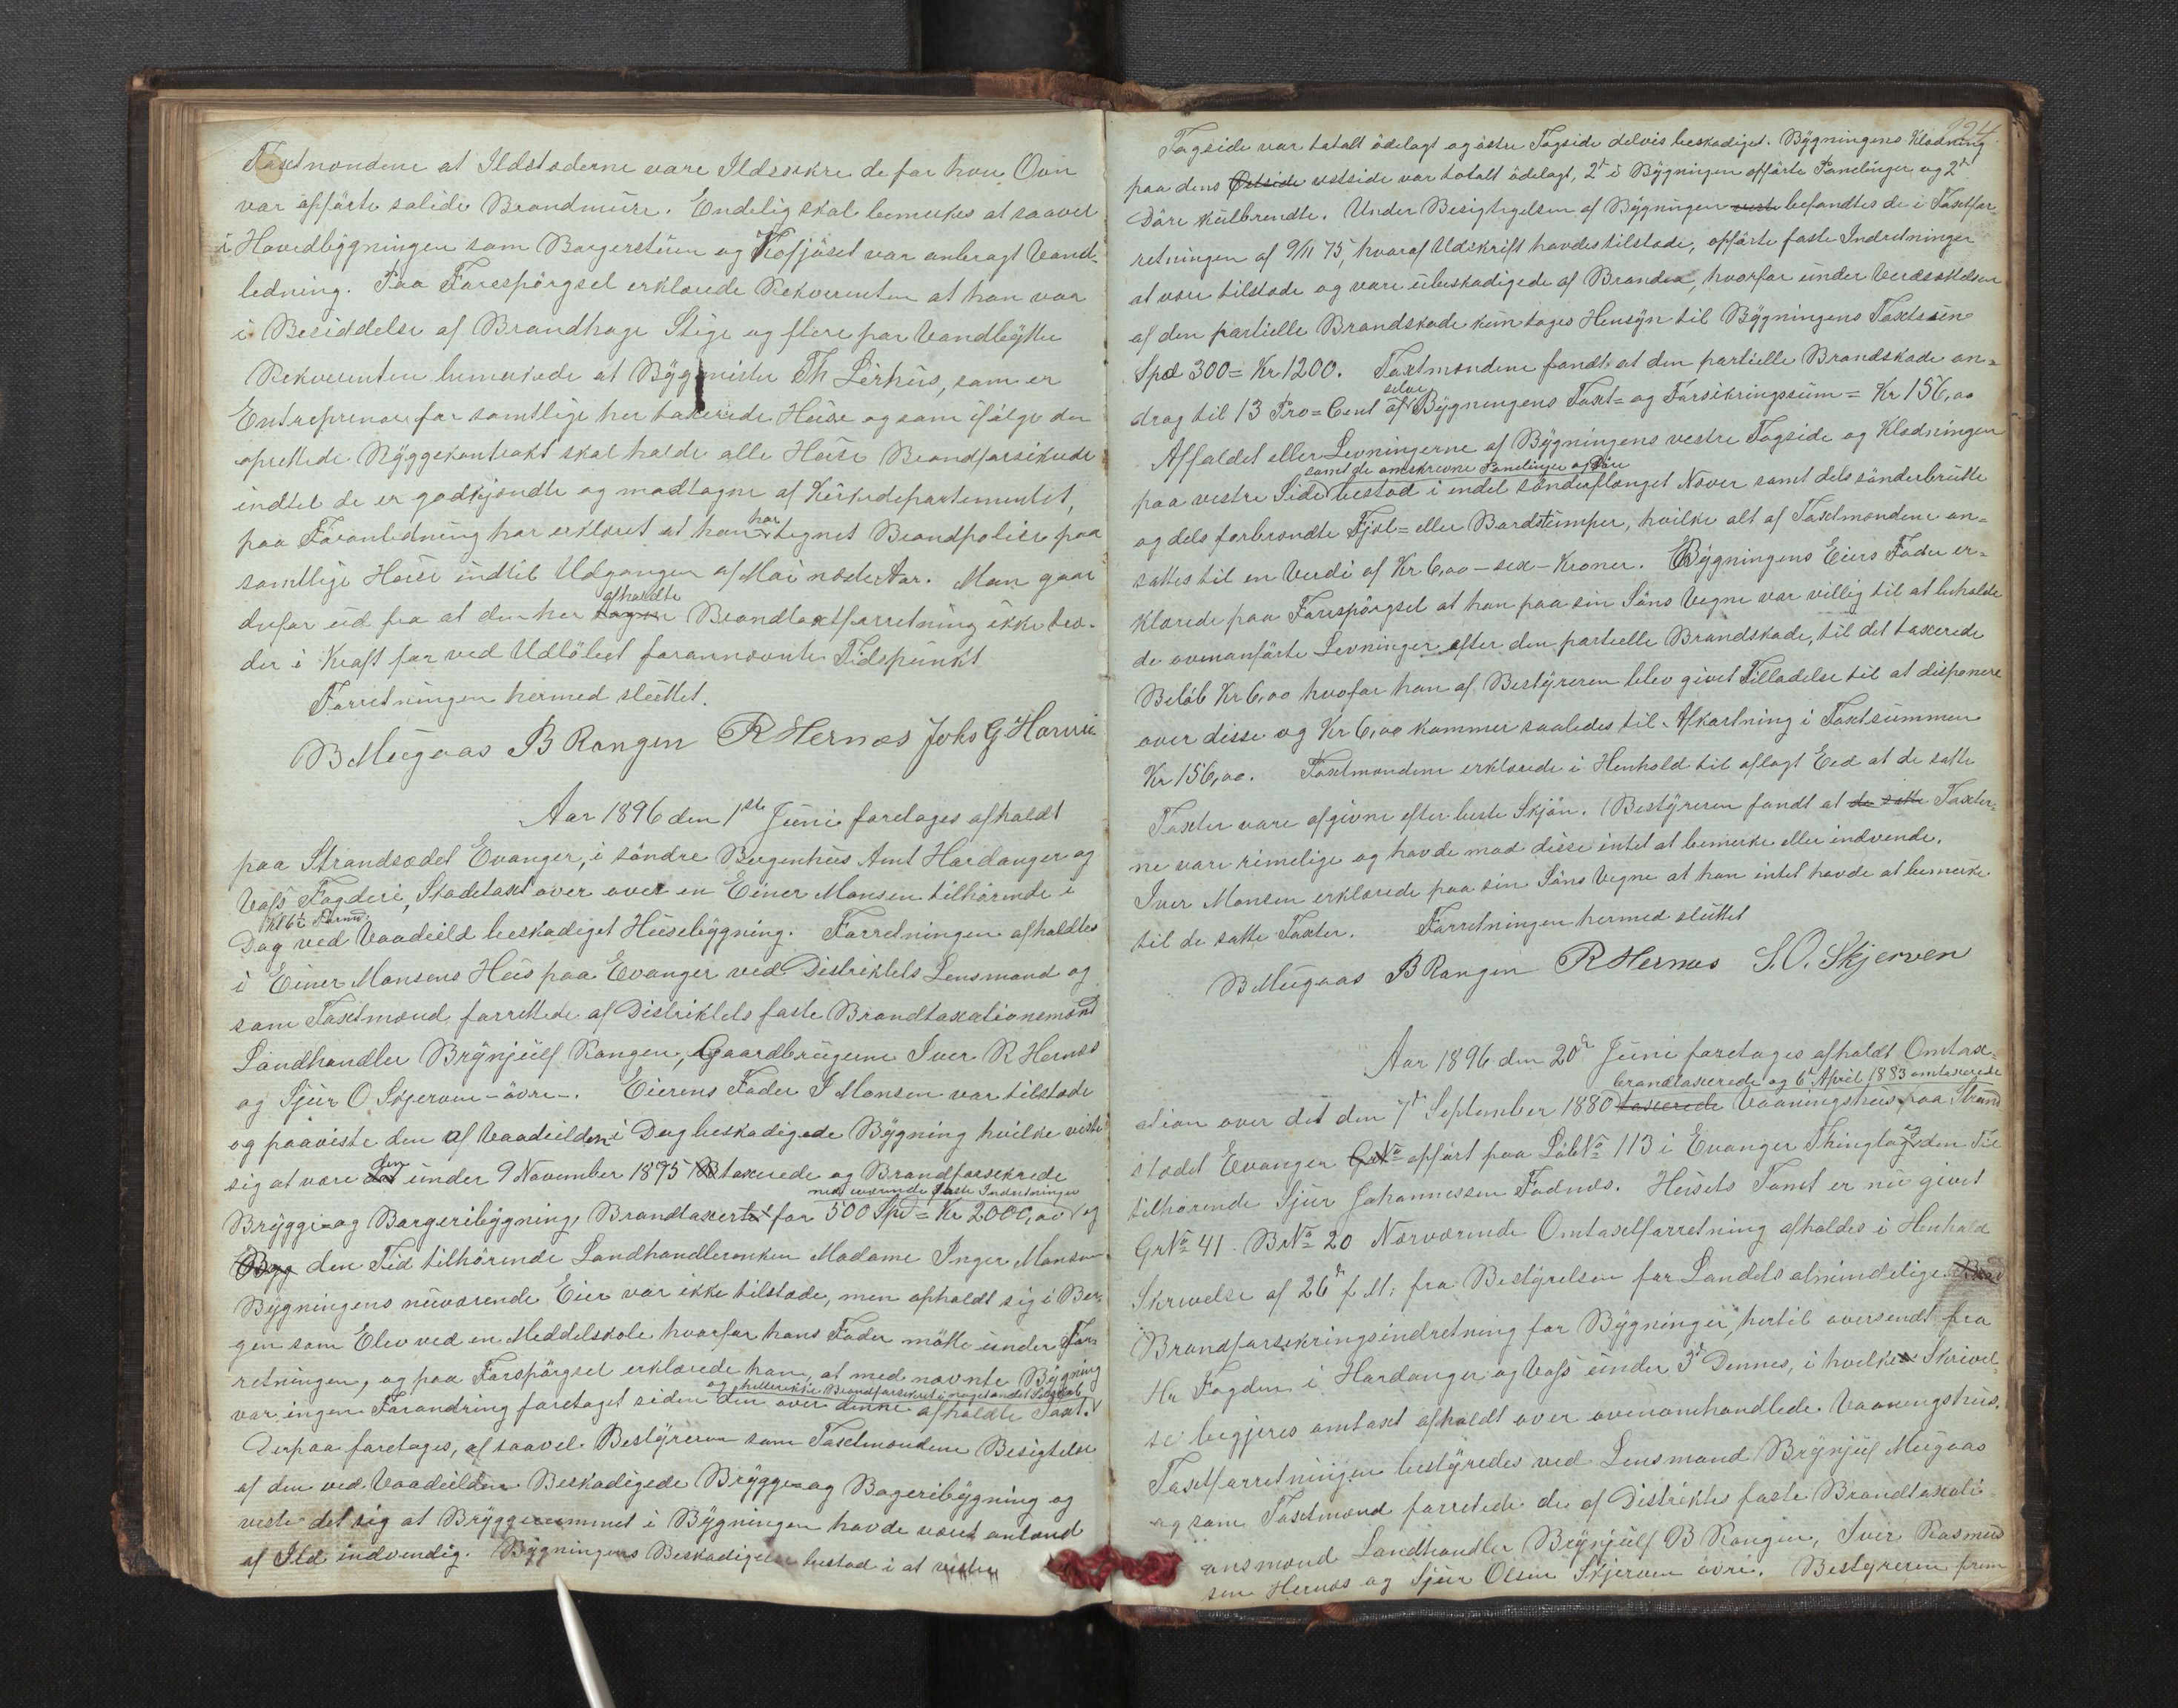 Taxtmændene at Ildstæderne vare Ildssikre da for hver Ovn
var opförte solide Brandmure. Endelig skal bemærkes at saavel
i Hovedbygningen som Borgerstuen og Kofjöset var anbragt Vand-
ledning. Paa Forespörgsel erklærede Rekvirenten at han var
i Besiddelse af Brandhage Stige og flere par Vandbytter
Rekvirenten bemærkede at Bygmester Th Lirhus, som er
Entreprenør for samtlige her taxerede Huse og som ifölge den
oprettede Byggekontrakt skal holde alle Huse Brandforsikrede
indtil de er godkjendte og modtagne af Kirkedepartementet,
paa Foranledning har erklæret at han har tegnet Brandpolice paa
samtlige Huse indtil Udgangen af Mai næste Aar. Man gaar
derfor ud fra at den her afholdte Brandtaxtforretning ikke træ-
der i Kraft før ved Udlöbet forannævnte Tidspunkt
Forretningen hermed sluttet.
B Mugaas B Rongen R Hernæs Johs G Horvei
Aar 1896 den 1ste Juni foretages afholdt
paa Strandsædet Evanger, i söndre Bergenhus Amt Hardanger og
Voss Fogderi, Skadetaxt over over en Einer Monsen tilhörende i
Kl 6 Formd.
Dag ved Vaadeild beskadiget Husebygning. Forretningen afholdtes
i Einer Monsens Hus paa Evanger ved Distriktets Lensmand og
som Taxtmænd forrettede af Distriktets faste Brandtaxationsmænd
Landhandler Brynjulf Rongen, Gaardbrugerne Iver R Hernæs
og Sjur O Skjerven - övre -. Eierens Fader I Monsen var tilstede
og paaviste den af Vaadeilden i Dag beskadigede Bygning hvilke viste
sig at være den under 9 November 1875 taxerede og Brandforsikrede
med værende faste Indretninger
Brygge- og Borgeribygning, Brandtaxert for 500 Spd = Kr 2000,00 og
Byg den Tid tilhörende Landhandlerenken Madame Inger Monsen
Bygningens nuværende Eier var ikke tilstede, men opholdt sig i Ber-
gen som Elev ved en Meddelskole hvorfor hans Fader mötte under For-
retningen, og paa Forspörgsel erklærede han, at med nævnte Bygning
og hellerikke Brandforsikret i noget andet Selskab
var ingen Forandring foretaget siden den over denne afholdte Taxt.
Derpaa foretages, af saavel Bestyreren som Taxtmændene Besigtelse
af den ved Vaadeilden Beskadigede Brygge- og Bageribygning og
viste det sig at Bryggerummet i Bygningen havde været antænd
af Ild indvendig. Bygningens Beskadigelse bestod i at vestre
224
Tagside var totalt ödelagt og östre Tagside delvis beskadiget. Bygningens Klædning
paa dens Östside vestside var totalt ödelagt, 2de i Bygningen opförte Panelinger og 2de
Döre kulbrendte. Under Besigtigelsen af Bygningen vest befandtes de i Taxtfor-
retningen af 9/11 75, hvoraf Udskrift havdes tilstede, opförte faste Indretninger
at være tilstede og vare ubeskadigede af Branden, hvorfor under Værdsættelsen
af den partielle Brandskade kun toges Hensyn til Bygningens Taxtsum
Spd 300 = Kr 1200. Taxtmændene fandt at den partielle Brandskade an-
drog til 13 Pro=Cent af selve Bygningens Taxt- og Forsikringssum = Kr 156,00
Affaldet eller Levningerne af Bygningens vestre Tagside og Klædningen
samt de omskrevne Panelinger og Döre
paa vestre Side bestod i endel sönderflænget Næver samt dels sönderbrutte
og dels forbrændte Fjæl- eller Bordstumper, hvilke alt af Taxtmændene an-
sattes til en Verdi af Kr 6,00 - sex - Kroner. Bygningens Eiers Fader er-
klærede paa Forespörgsel at han paa sin Söns Vegne var villig til at beholde
de ovenanförte Levninger efter den partielle Brandskade, til det taxerede
Belöb Kr 6,00 hvofor han af Bestyreren blev givet Tilladelse til at disponere
over disse og Kr 6,00 kommer saaledes til Afkortning i Taxtsummen
Kr 156,00. Taxtmændene erklærede i Henhold til aflagt Eed at de satte
Taxter vare afgivne efter beste Skjön. Bestyreren fandt at de satte Taxter-
ne vare rimelige og havde mod disse intet at bemerke eller indvende.
Iver Monsen erklærede paa sin Söns Vegne at han intet havde at bemerke
til de satte Taxter. Forretningen hermed sluttet
B Mugaas B Rongen R Hernæs S. O. Skjerven
Aar 1896 den 20de Juni foretages afholdt Omtax-
brandtaxerede og 6te April 1883 omtaxerede
ation over det den 7de September 1880 taxerede Vaaningshus paa Strand
stædet Evanger GrNo opfört paa LöbNo 113 i Evanger Thinglag og den Tid
tilhörende Sjur Johannessen Fadnæs. Husets Tomt er nu givet
GrNo 41 BrNo 20 Nærværende Omtaxtforretning afholdes i Henhold
Skrivelse af 26de f. M. fra Bestyrelsen for Landets almindelige Brand
Brandforsikringsindretning for Bygninger, hertil oversendt fra
Hr Fogden i Hardanger og Voss under 3de Dennes, i hvilken Skrivel-
se begjeres omtaxt afholdt over ovenomhandlede Vaaningshus.
Taxtforretningen bestyredes ved Lensmand Brynjulf Mugaas
og som Taxtmænd forrettede de af Distriktets faste Brandtaxati-
onsmænd Landhandler Brynjulf B Rongen, Iver Rasmus
sen Hernæs og Sjur Olsen Skjerven övre. Bestyreren frem